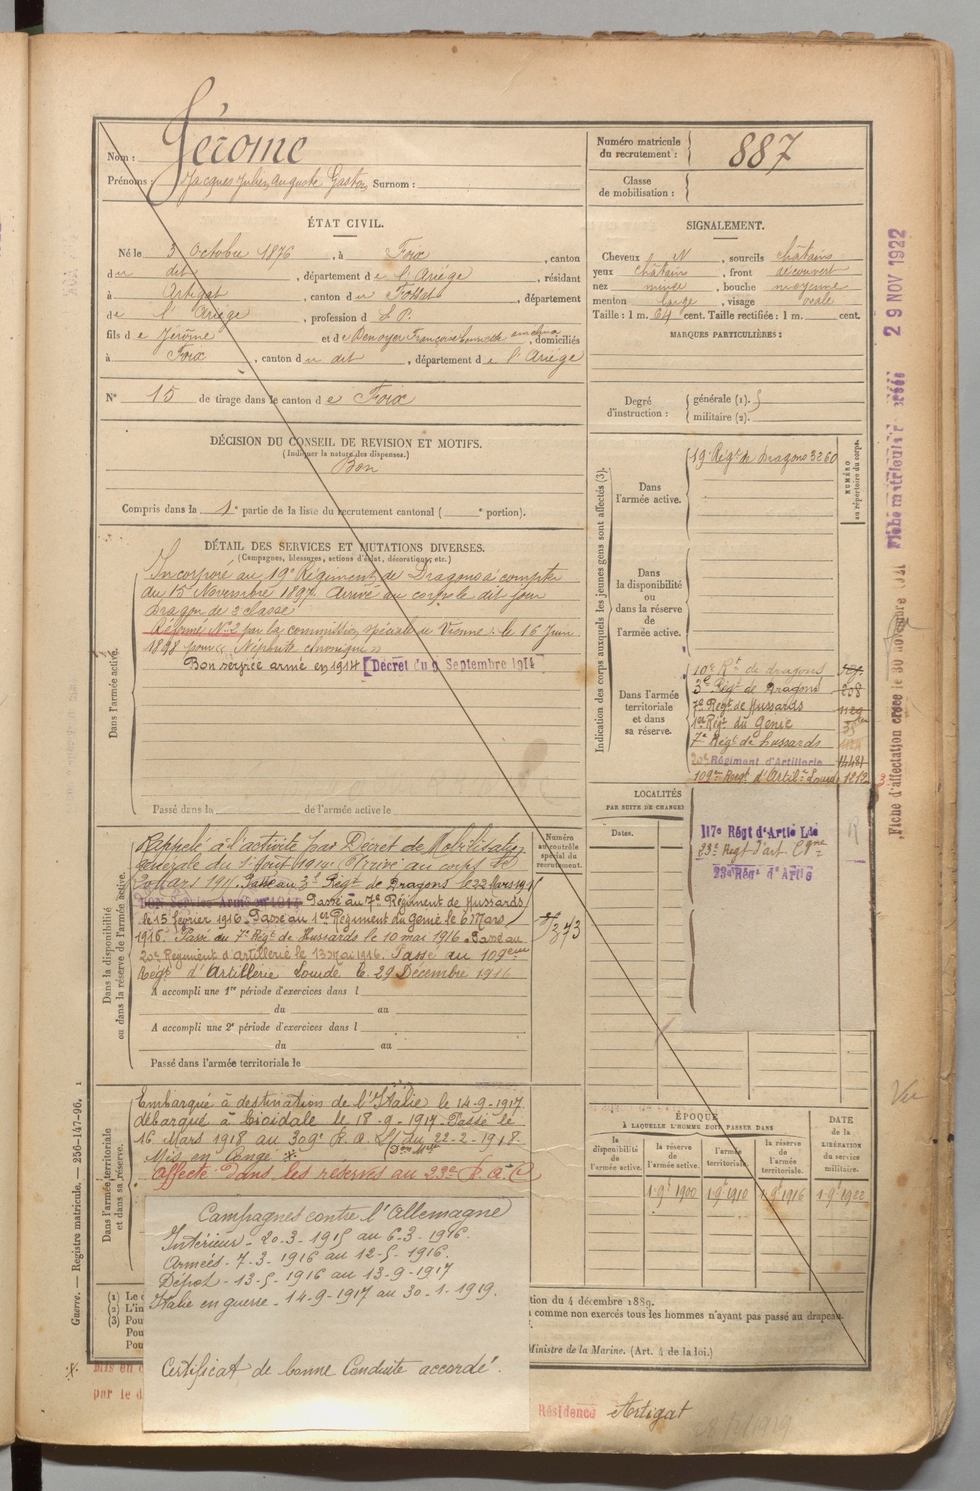 Nom : Jérome
Prénoms : Jacques Julien Auguste Gaston Surnom :
Numéro matricule du recrutement : 887
Classe de mobilisation :
ÉTAT CIVIL.
Né le 3 Octobre 1876, à Foix, canton
du dit, département de l'Ariège, résidant
à Artigat, canton du Fossat, département
de l'Ariège, profession d E.P.
fils de Jérôme et de Denoyer Françoise, domiciliés
à Foix, canton du dit, département de l'Ariège
N° 15 de tirage dans le canton de Foix
SIGNALEMENT.
Cheveux N, sourcils châtains
yeux châtain, front découvert
nez mince, bouche moyenne
menton large, visage ovale
Taille : 1 m. 64 cent. Taille rectifiée : 1 m. cent.
MARQUES PARTICULIÈRES :
Degré d'instruction : générale (1).
militaire (2).
DÉCISION DU CONSEIL DE REVISION ET MOTIFS.
(Indiquer la nature des dispenses.)
Bon
Compris dans la 1e partie de la liste du recrutement cantonal ( e portion).
DÉTAIL DES SERVICES ET MUTATIONS DIVERSES.
(Campagnes, blessures, actions d'éclat, décorations, etc.)
Dans l'armée active.
Incorporé au 19e Régiment de Dragons à compter
du 15 Novembre 1897. Arrivé au corps le dit jour
Dragon de 2 classe
Réformé N°2 par la commission spéciale de Vienne le 16 Juin
1898 pour "Néphrite chronique"
Bon service armé en 1914 [Décret du 9 Septembre 1914
Passé dans la de l'armée active le
Dans la disponibilité
ou dans la réserve de l'armée active.
Rappelé à l'activité par Décret de Mobilisation
Générale du 1 Août 1914. Arrivé au corps le
20 Mars 191 . Passé au 3e Régt de Dragons le 22 Mars 191
Bon Service Armé en 1914 Passé au 7e Régiment de Hussards
le 15 février 1916. Passé au 1er Régiment du Génie le 6 Mars
1916. Passé du 7e Régt de Hussards le 10 mai 1916. Passé au
20e Régiment d'Artillerie le 13 mai 1916. Passé au 109eme
Régt d'Artillerie Lourde le 29 Décembre 1916
A accompli une 1re période d'exercices dans l
du au
A accompli une 2e période d'exercices dans l
du au
Passé dans l'armée territoriale le
Numéro au contrôle spécial du recrutement.
Dans l'armée territoriale
et dans sa réserve.
Embarqué à destination de l'Italie le 14-9-1917
débarqué à Cividale le 18-9-1917. Passé le
16 Mars 1918 au 309e R.A.L. du 22-2-1918.
Mis en congé *
Affecté dans les réserves au 23e R.A.C
Campagnes contre l'Allemagne
Intérieur - 20-3-1915 au 6-3-1916.
Armées - 7-3-1916 au 12-5-1916.
Dépot - 13-5-1916 au 13-9-1917
Italie en guerre - 14-9-1917 au 30-1-1919.
Certificat de bonne Conduite accordé.
Indication des corps auxquels les jeunes gens sont affectés (3).
NUMÉRO au répertoire du corps.
Dans l'armée active.
19e Régt de Dragons 3260
Dans la disponibilité ou dans la réserve de l'armée active.
Dans l'armée territoriale et dans sa réserve.
10e Rt de dragons
3e Régt de Dragons 208
7e Régt de Hussards
1er Régt du Génie
7e Régt de hussards
20e Régiment d'Artillerie
109e Régt d'Artil. Lourde 1212
LOCALITÉS
PAR SUITE DE CHANGE
Dates.
117e Régt d'Artie Lde
23e Régt d'art. Cgne
23e Régt d'Artie
ÉPOQUE
À LAQUELLE L'HOMME DOIT PASSER DANS
la disponibilité de l'armée active.
la réserve de l'armée active.
l'armée territoriale.
la réserve de l'armée territoriale.
DATE de la LIBÉRATION du service militaire.
1 9e 1900
1 9e 1910
1 9e 1916
1 9e 1922
(1) Le
(2) L'in
(3) Pou
Pou
Pou
tion du 4 décembre 1889.
comme non exercés tous les hommes n'ayant pas passé au drapeau.
Ministre de la Marine. (Art. 4 de la loi.)
Mis en
par le d
Résidence Artigat
Guerre. — Registre matricule. — 256-147-96.
29 NOV 1922
Fiche matricule créée
Fiche d'affectation créée le 30 novembre
Vu